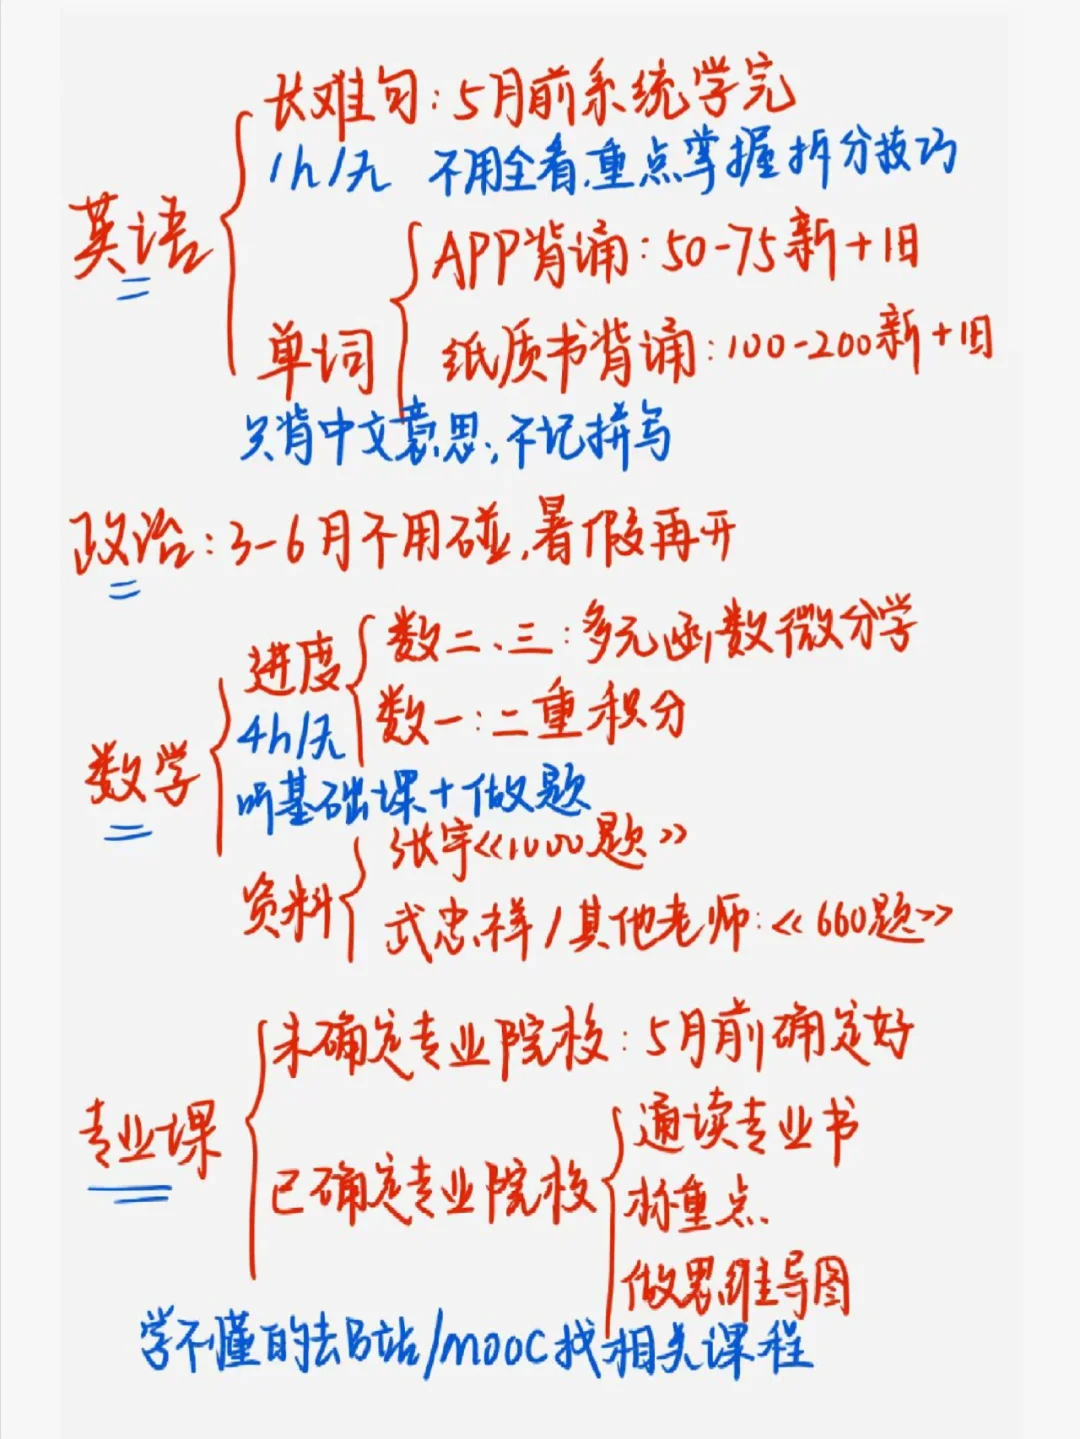 长难句：5月前系统学完
1h/天 不用全看，重点掌握拆分技巧
英语
APP背诵：50-75新+旧
单词
纸质书背诵：100-200新+旧
只背中文意思，不记拼写
政治：3-6月不用碰，暑假再开
进度
数二、三：多元函数微分学
数一：二重积分
4h/天
数学
听基础课+做题
张宇《1000题》
资料
武忠祥/其他老师：《660题》
未确定专业院校：5月前确定好
专业课
通读专业书
已确定专业院校
标重点
做思维导图
学不懂的去B站/mooc找相关课程